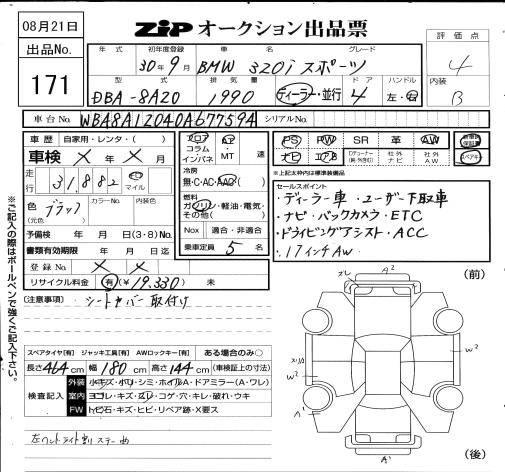 08月21日
ZIP オークション出品票
出品No.
171
年式 初年度登録 車名 グレード
30年9月 BMW 320i スポーツ
型式 排気量 ドア ハンドル
DBA-8A20 1990 ディーラー・並行 4 左・右
評価点
4
内装
B
車台No. WBA8A12040A677594 シリアルNo.
車歴 自家用・レンタ・( )
車検 × 年 × 月
走行 31,882 マイル
色 ブラック カラーNo. 内装色
(元色)
予備検 年 月 日(3・8)No.
書類有効期限 年 月 日迄
登録No. × ×
リサイクル料金 有(¥19,330) 未
フロア AT
コラム
インパネ ・MT 速
冷房
無・C・AC・AAC
燃料
ガソリン・軽油・電気・
その他( )
Nox 適合・非適合
乗車定員 5 名
PS PW SR 革 AW
ナビ エアB 社外ナビ 社外AW
新車時保証書
スペアキー
※上記太枠内は標準装備品
セールスポイント
・ディーラー車 ・ユーザー下取車
・ナビ・バックカメラ・ETC
・ドライビングアシスト・ACC
・17インチAW
※ご記入の際はボールペンで強くご記入下さい。
(注意事項) シートカバー取付け
スペアタイヤ[有] ジャッキ工具[有] AWロックキー[有] ある場合のみ○
長さ 464 cm 幅 180 cm 高さ 144 cm (車検証上の寸法)
検査記入
外装 小キズ・小凹・シミ・ホイルA・ドアミラー(A・ワレ)
室内 ヨゴレ・キズ・スレ・コゲ・穴・キレ・破れ・ウキ
FW トビ石・キズ・ヒビ・リペア跡・X要ス
左ヘッドライト割 ステー曲
(前)
ズレ A2
W2 W2
A1
A1
(後)